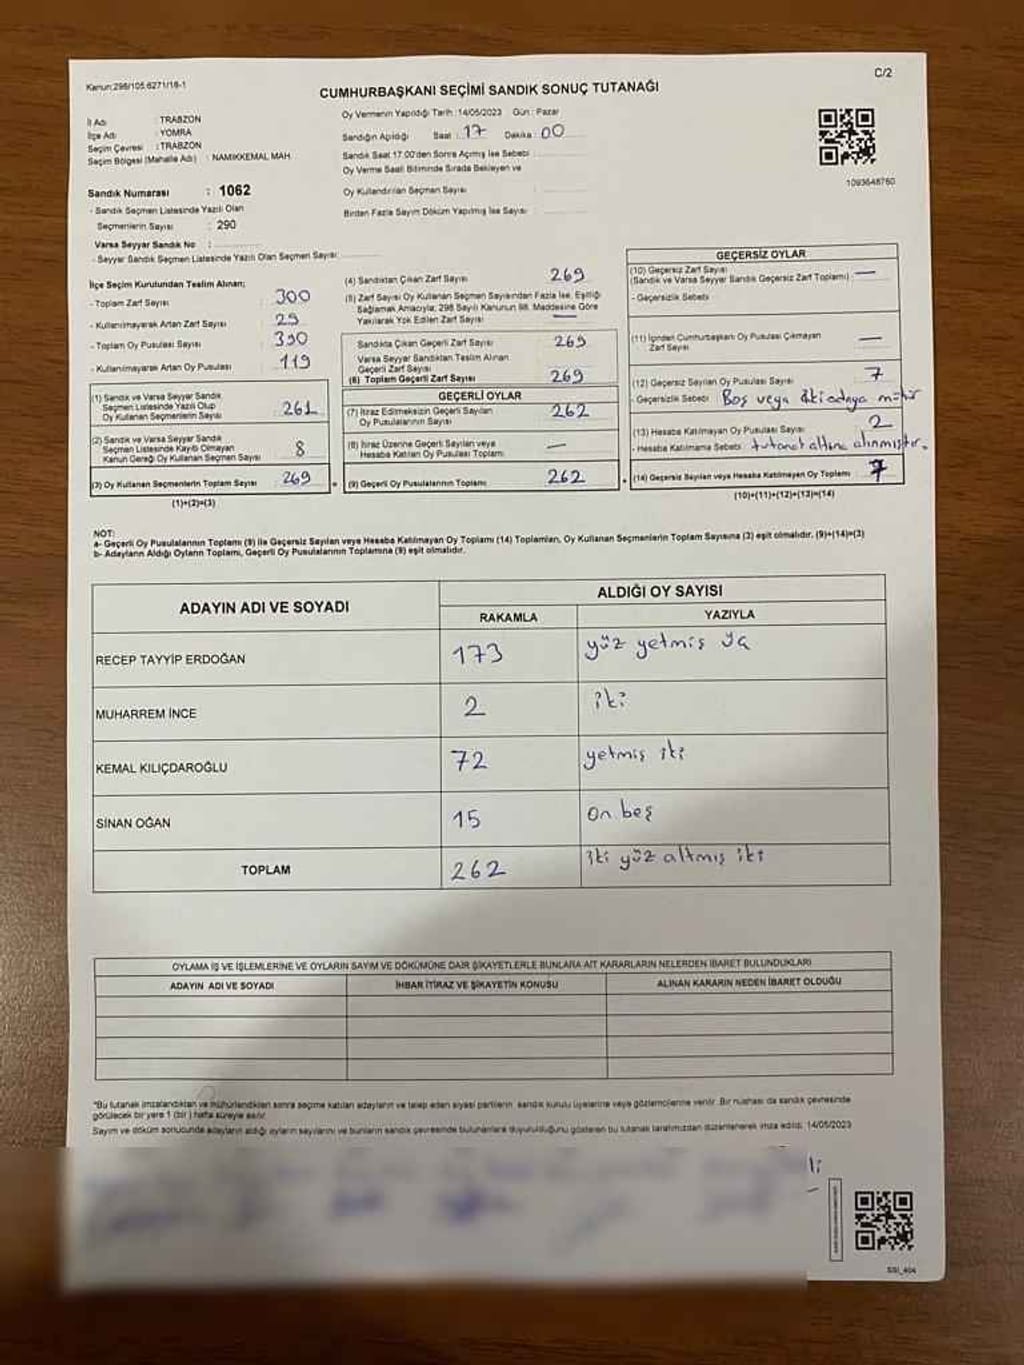 Kanun:298/105.6271/18-1
C/2
CUMHURBAŞKANI SEÇİMİ SANDIK SONUÇ TUTANAĞI
İl Adı : TRABZON
İlçe Adı : YOMRA
Seçim Çevresi : TRABZON
Seçim Bölgesi (Mahalle Adı) : NAMIKKEMAL MAH.
Oy Vermenin Yapıldığı Tarih :14/05/2023 Gün : Pazar
Sandığın Açıldığı Saat : 17 Dakika : 00
Sandık Saat 17:00'den Sonra Açılmış İse Sebebi :
Oy Verme Saati Bitiminde Sırada Bekleyen ve
Oy Kullandırılan Seçmen Sayısı :
Birden Fazla Sayım Döküm Yapılmış İse Sayısı :
1093648760
Sandık Numarası : 1062
- Sandık Seçmen Listesinde Yazılı Olan
Seçmenlerin Sayısı : 290
Varsa Seyyar Sandık No :
- Seyyar Sandık Seçmen Listesinde Yazılı Olan Seçmen Sayısı:
İlçe Seçim Kurulundan Teslim Alınan;
- Toplam Zarf Sayısı : 300
- Kullanılmayarak Artan Zarf Sayısı :
- Toplam Oy Pusulası Sayısı :
- Kullanılmayarak Artan Oy Pusulası : 119
(1) Sandık ve Varsa Seyyar Sandık
Seçmen Listesinde Yazılı Olup
Oy Kullanan Seçmenlerin Sayısı 261
(2) Sandık ve Varsa Seyyar Sandık
Seçmen Listesinde Kayıtlı Olmayan
Kanun Gereği Oy Kullanan Seçmen Sayısı 8
(3) Oy Kullanan Seçmenlerin Toplam Sayısı 269
(1)+(2)=(3)
(4) Sandıktan Çıkan Zarf Sayısı 269
(5) Zarf Sayısı Oy Kullanan Seçmen Sayısından Fazla İse, Eşitliği
Sağlamak Amacıyla; 298 Sayılı Kanunun 98. Maddesine Göre
Yakılarak Yok Edilen Zarf Sayısı : —
Sandıkta Çıkan Geçerli Zarf Sayısı 269
Varsa Seyyar Sandıktan Teslim Alınan
Geçerli Zarf Sayısı
(6) Toplam Geçerli Zarf Sayısı 269
GEÇERLİ OYLAR
(7) İtiraz Edilmeksizin Geçerli Sayılan
Oy Pusulalarının Sayısı 262
(8) İtiraz Üzerine Geçerli Sayılan veya
Hesaba Katılan Oy Pusulası Toplamı —
(9) Geçerli Oy Pusulalarının Toplamı 262
GEÇERSİZ OYLAR
(10) Geçersiz Zarf Sayısı
(Sandık ve Varsa Seyyar Sandık Geçersiz Zarf Toplamı) —
- Geçersizlik Sebebi
(11) İçinden Cumhurbaşkanı Oy Pusulası Çıkmayan
Zarf Sayısı —
(12) Geçersiz Sayılan Oy Pusulası Sayısı 7
- Geçersizlik Sebebi Boş veya iki adaya mühür
(13) Hesaba Katılmayan Oy Pusulası Sayısı 2
- Hesaba Katılmama Sebebi tutanak altına alınmıştır.
(14) Geçersiz Sayılan veya Hesaba Katılmayan Oy Toplamı 7
(10)+(11)+(12)+(13)=(14)
NOT:
a- Geçerli Oy Pusulalarının Toplamı (9) ile Geçersiz Sayılan veya Hesaba Katılmayan Oy Toplamı (14) Toplamları, Oy Kullanan Seçmenlerin Toplam Sayısına (3) eşit olmalıdır. (9)+(14)=(3)
b- Adayların Aldığı Oyların Toplamı, Geçerli Oy Pusulalarının Toplamına (9) eşit olmalıdır.
ADAYIN ADI VE SOYADI
ALDIĞI OY SAYISI
RAKAMLA YAZIYLA
RECEP TAYYİP ERDOĞAN 173 yüz yetmiş üç
MUHARREM İNCE 2 iki
KEMAL KILIÇDAROĞLU 72 yetmiş iki
SİNAN OĞAN 15 on beş
TOPLAM 262 iki yüz altmış iki
OYLAMA İŞ VE İŞLEMLERİNE VE OYLARIN SAYIM VE DÖKÜMÜNE DAİR ŞİKAYETLERLE BUNLARA AİT KARARLARIN NELERDEN İBARET BULUNDUKLARI
ADAYIN ADI VE SOYADI İHBAR İTİRAZ VE ŞİKAYETİN KONUSU ALINAN KARARIN NEDEN İBARET OLDUĞU
*Bu tutanak imzalandıktan ve mühürlendikten sonra seçime katılan adayların ve talep eden siyasi partilerin sandık kurulu üyelerine veya gözlemcilerine verilir. Bir nüshası da sandık çevresinde
görülecek bir yere 1 (bir) hafta süreyle asılır.
Sayım ve döküm sonucunda adayların aldığı oyların sayılarını ve bunların sandık çevresinde bulunanlara duyurulduğunu gösteren bu tutanak tarafımızdan düzenlenerek imza edildi. 14/05/2023
SSI_404